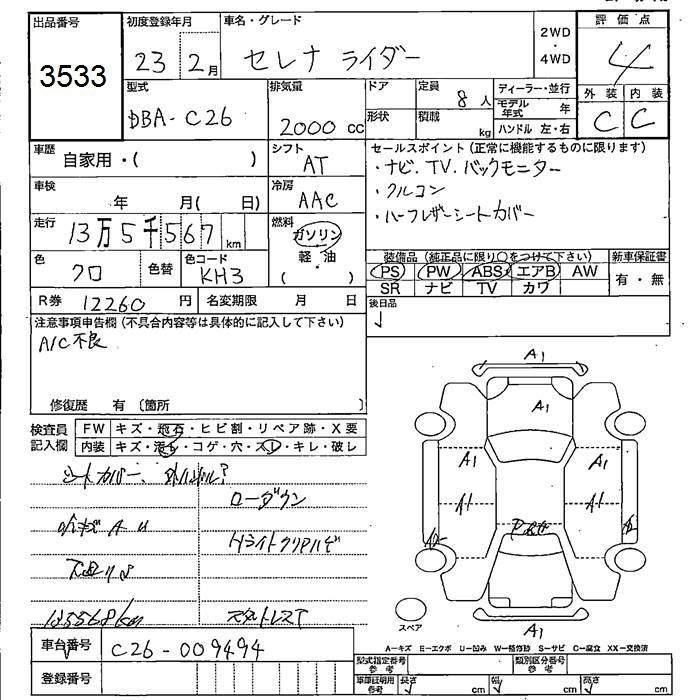 出品番号
3533
初度登録年月
23 2月
車名・グレード
セレナ ライダー
2WD
・
4WD
評価点
4
外装 内装
C C
型式
DBA-C26
排気量
2000 cc
ドア
形状
定員
8人
積載
kg
ディーラー・並行
モデル年式 年
ハンドル 左・右
車歴
自家用・( )
シフト
AT
セールスポイント(正常に機能するものに限ります)
・ナビ.TV.バックモニター
・クルコン
・ハーフレザーシートカバー
車検
年 月( 日)
冷房
AAC
走行
13万5千567 km
燃料
ガソリン
軽・油
( )
色
クロ
色替
色コード
KH3
装備品(純正品に限り○をつけて下さい)
PS PW ABS エアB AW
SR ナビ TV カワ
新車保証書
有・無
R券 12260 円
名変期限 月 日
後日品
注意事項申告欄(不具合内容等は具体的に記入して下さい)
A/C不良
修復歴 有〔箇所 〕
検査員
記入欄
FW キズ・飛石・ヒビ割・リペア跡・X要
内装 キズ・汚レ・コゲ・穴・スレ・キレ・破レ
シートカバー、
ローダウン
135568km
車台番号
C26-009494
登録番号
A1
A1
A1 A1
A1 A1
A1
スペア
A-キズ E-エクボ U-凹み W-補修跡 S-サビ C-腐食 XX-交換済
型式指定番号
参考
類別区分番号
参考
車庫証明用
参考
長さ cm 幅 cm 高さ cm